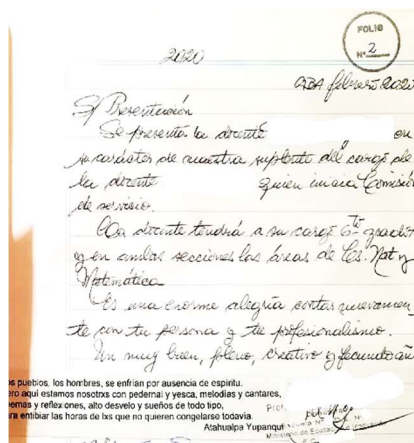 FOLIO
N° 2
2020
CABA febrero 2020
S/ Presentación
Se presenta la docente en
su carácter de maestra suplente del cargo de
la docente quien inicia Comisión
de servicio.
La docente tendrá a su cargo 6to grado
y en ambas secciones las áreas de Cs. Nat y
Matemática.
Es una enorme alegría contar nuevamen
te con tu persona y tu profesionalismo.
Un muy buen, pleno, creativo y fecundo añ
os pueblos, los hombres, se enfrían por ausencia de espíritu.
ero aquí estamos nosotrxs con pedernal y yesca, melodías y cantares,
oemas y reflexiones, alto desvelo y sueños de todo tipo,
ra entibiar las horas de lxs que no quieren congelarse todavía.
Atahualpa Yupanqui
Prof.
Escuela N°
Ministerio de Educación